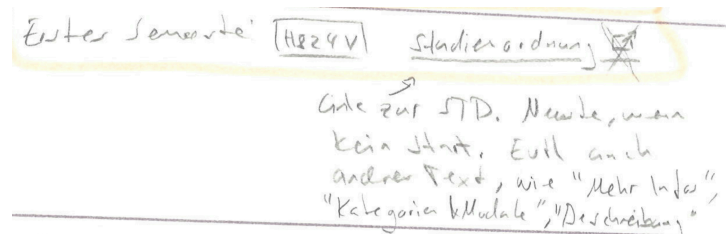 Erstes Semester: HS24 V Studienordnung
Link zur STD. Neuste, wenn
kein Start. Evtl auch
anderer Text, wie "Mehr Infos",
"Kategorien & Module", "Beschreibung"